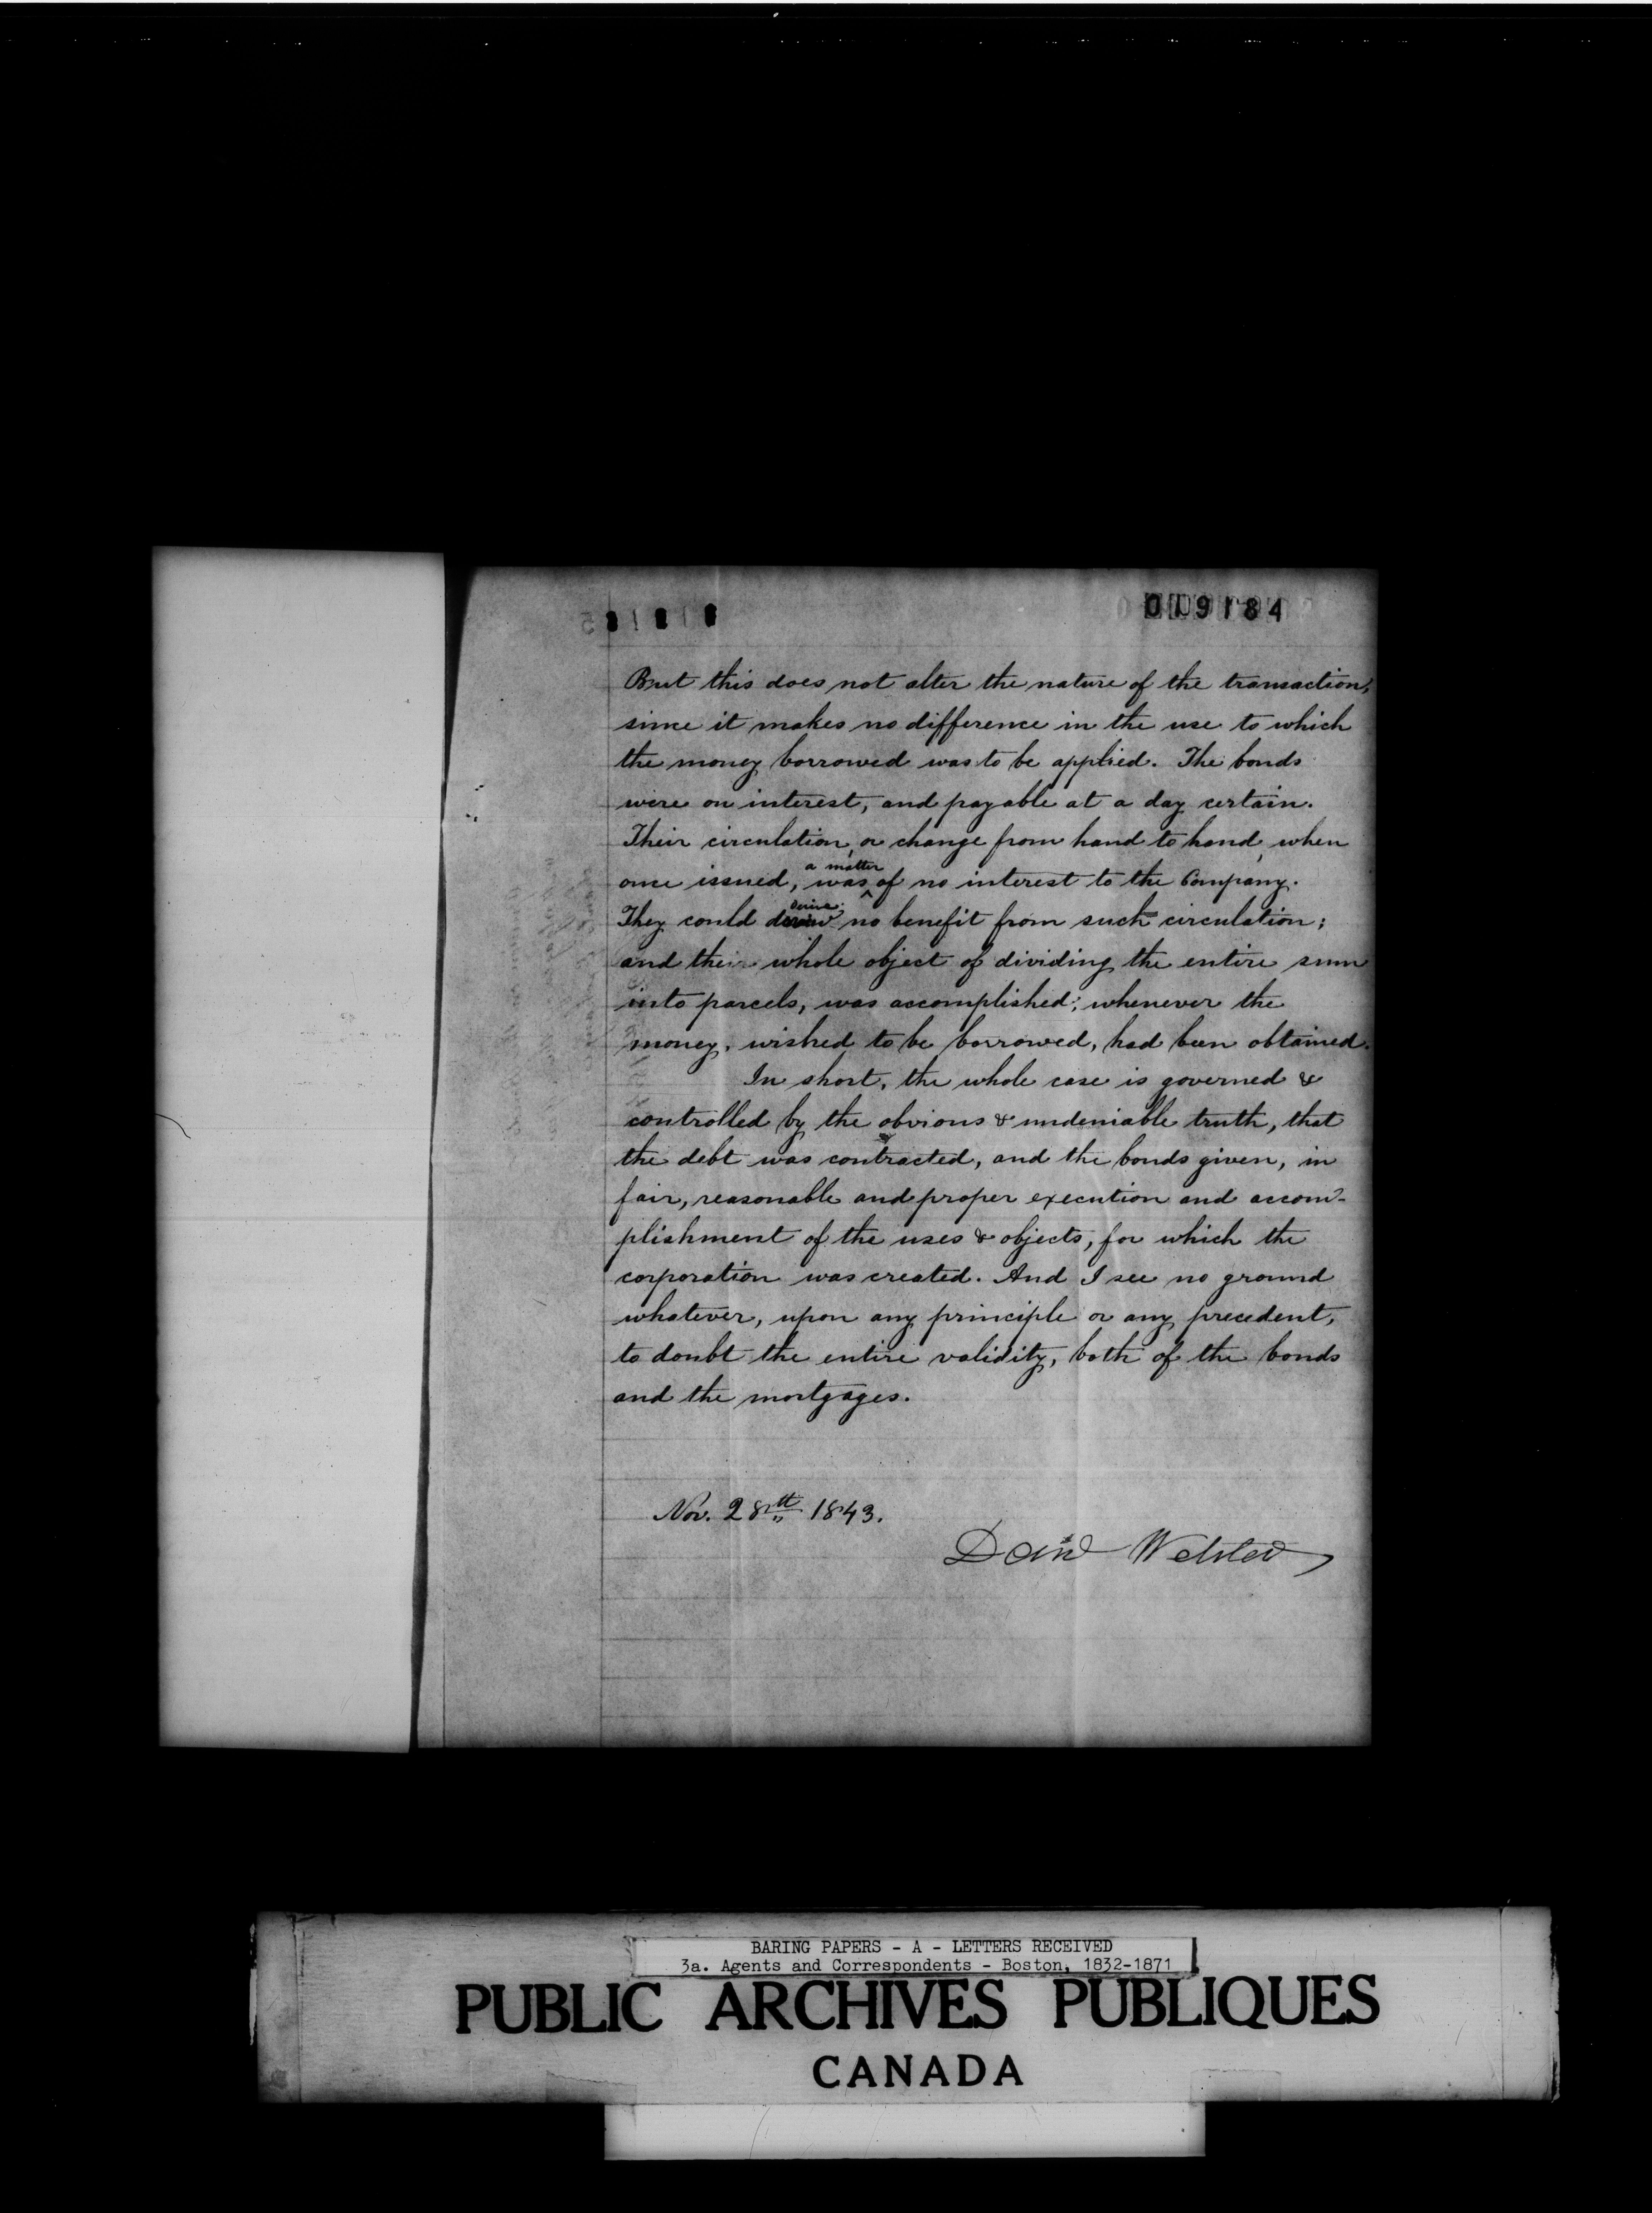 019184
But this does not alter the nature of the transaction,
since it makes no difference in the use to which
the money borrowed was to be applied. The bonds
were on interest, and payable at a day certain.
Their circulation, or change from hand to hand, when
once issued, was a matter of no interest to the Company.
They could derive no benefit from such circulation;
and their whole object of dividing the entire sum
into parcels, was accomplished; whenever the
money, wished to be borrowed, had been obtained.
In short, the whole case is governed &
controlled by the obvious & undeniable truth, that
the debt was contracted, and the bonds given, in
fair, reasonable and proper execution and accom-
plishment of the uses & objects, for which the
corporation was created. And I see no ground
whatever, upon any principle or any precedent,
to doubt the entire validity, both of the bonds
and the mortgages.
Nov. 28th 1843.
Danl Webster
BARING PAPERS - A - LETTERS RECEIVED
3a. Agents and Correspondents - Boston, 1832-1871
PUBLIC ARCHIVES PUBLIQUES
CANADA